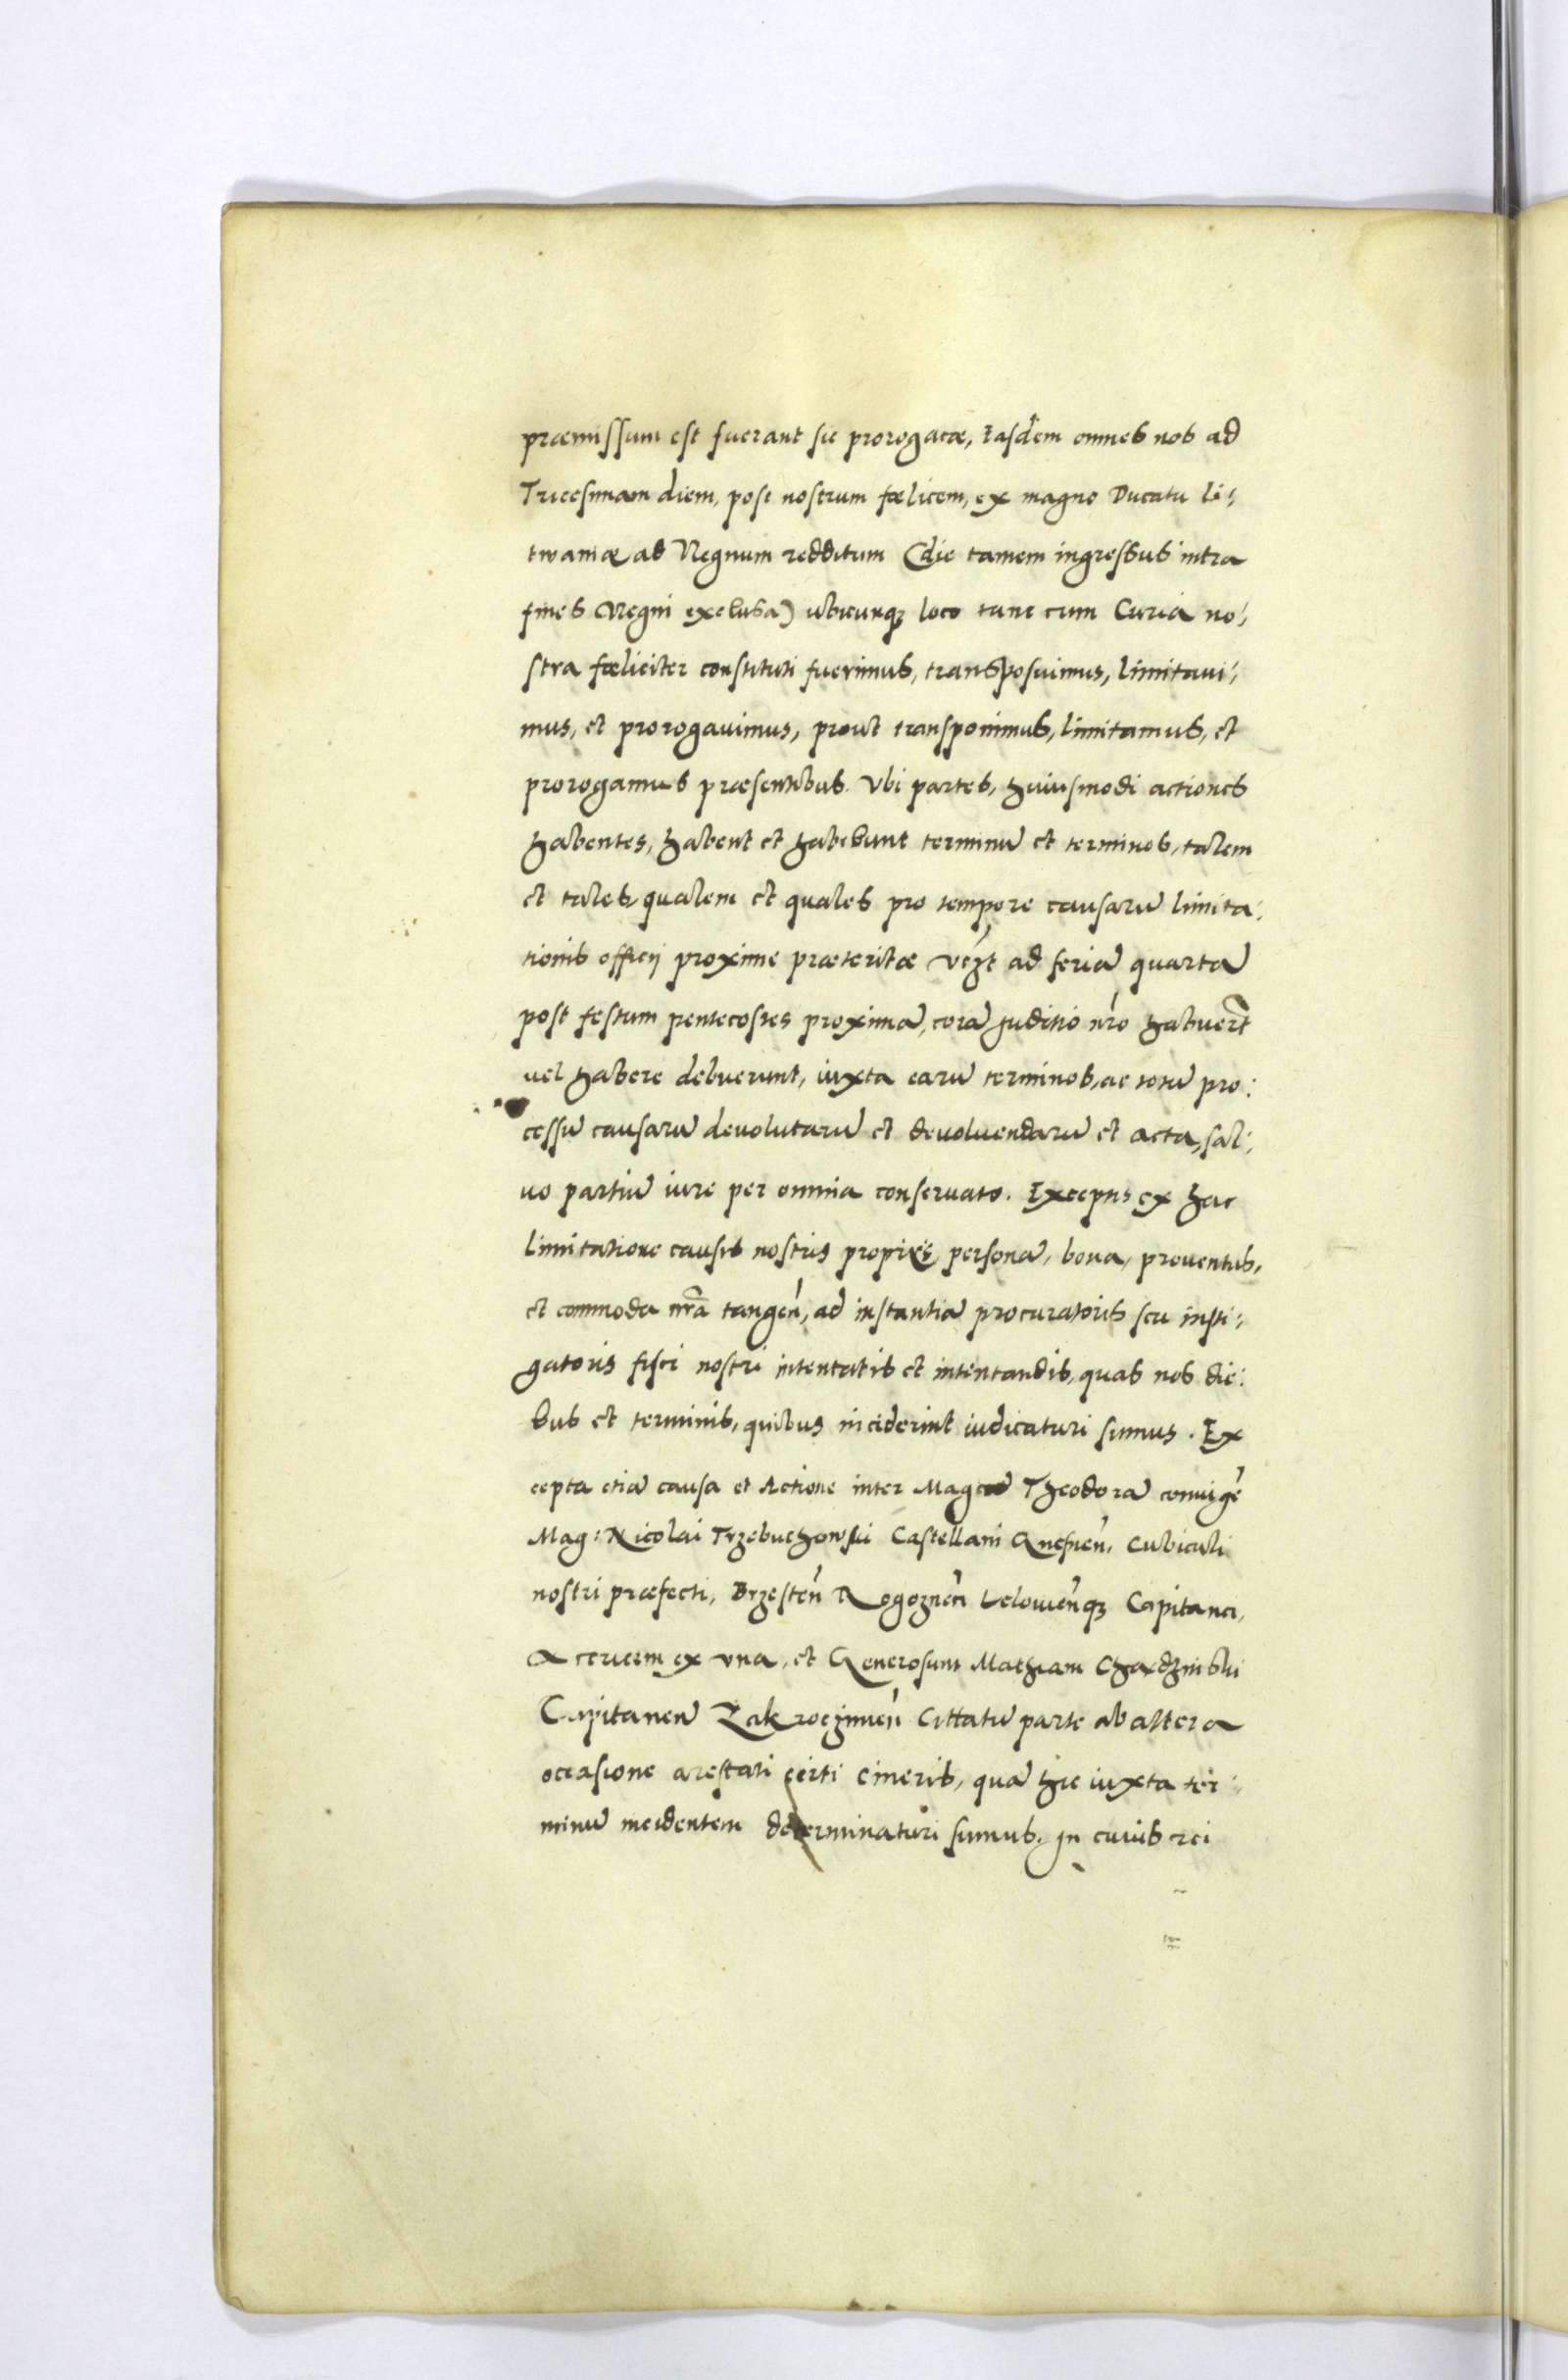 præmissum est fuerant sic prorogatæ, Easdem omnes nos ad
Tricesimam diem, post nostrum fœlicem, ex magno Ducatu Li:
twaniæ ad Regnum redditum (die tamen ingressus intra
fines Regni exclusa) ubicunqꝫ loco tunc cum Curia no:
stra fœliciter constituti fuerimus, transposuimus, limitaui:
mus, et prorogauimus, prout transponimus, limitamus, et
prorogamus præsentibus. Vbi partes, huiusmodi actiones
habentes, habent et habebunt terminũ et terminos, talem
et tales, qualem et quales pro tempore causarũ limita:
tionis officij proxime præteritæ vẽzt ad feriã quartã
post festum pentecostes proximã, corã Juditio nr̃o habuer̃t
uel habere debuerunt, iuxta earũ terminos, ac totũ pro:
cessũ causarũ deuolutarũ et deuoluendarũ et acta, sal:
uo partiũ iure per omnia conseruato. Exceptis ex hac
limitatione causis nostris proprijs, personã, bona, prouentus,
et commoda nr̃a tangeñ, ad instantiã procuratoris seu insti:
gatoris fisci nostri intentatis et intentandis, quas nos die:
bus et terminis, quibus inciderint iudicaturi sumus. Ex
cepta etiã causa et Actione inter Magcã Theodorã coniugẽ
Mag: Nicolai Trzebuchowski Castellani Gnesneñ, Cubiculi
nostri præfecti, Brzesteñ Rogozneñ Leloweñqꝫ Capitanei,
Actricem ex vna, et Generosum Mathiam
Capitaneũ Zakroczimeñ Cittatũ parte ab altera
occasione arestati certi cineris, quã hic iuxta ter:
minũ incidentem determinaturi sumus. In cuius rei